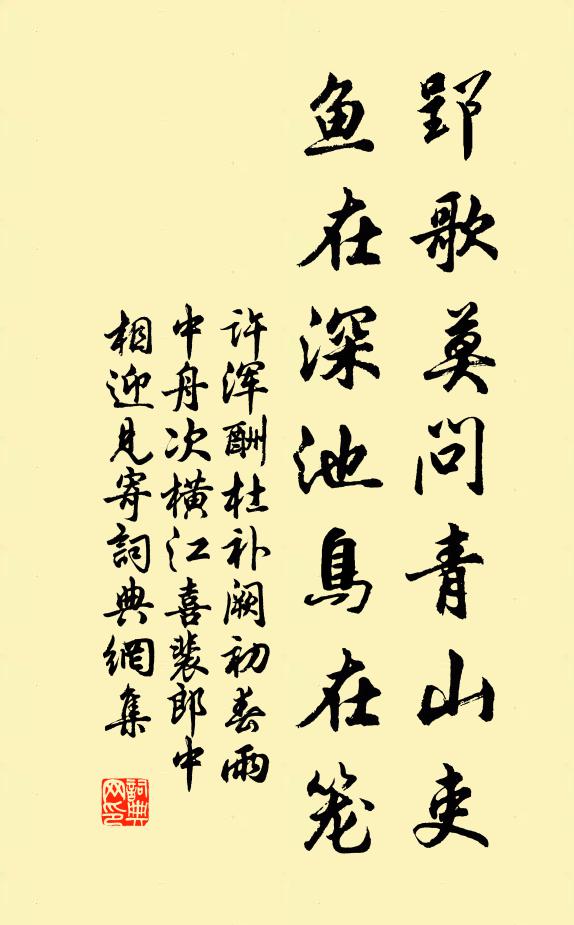 郢歌莫问青山吏
鱼在深池鸟在笼
许浑酬杜补阙初春雨
中舟次横江喜裴郎中
相迎见寄词典網集
詞典
网印